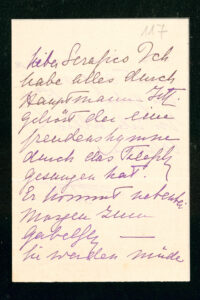 117
lieber Serafico Ich
habe alles durch
Hauptmann
gehört der eine
freudenshymne
durch das Teleph
gesungen hat!
Er kommt nebenbei
Morgen zum
Gabelf
Sie werden müde